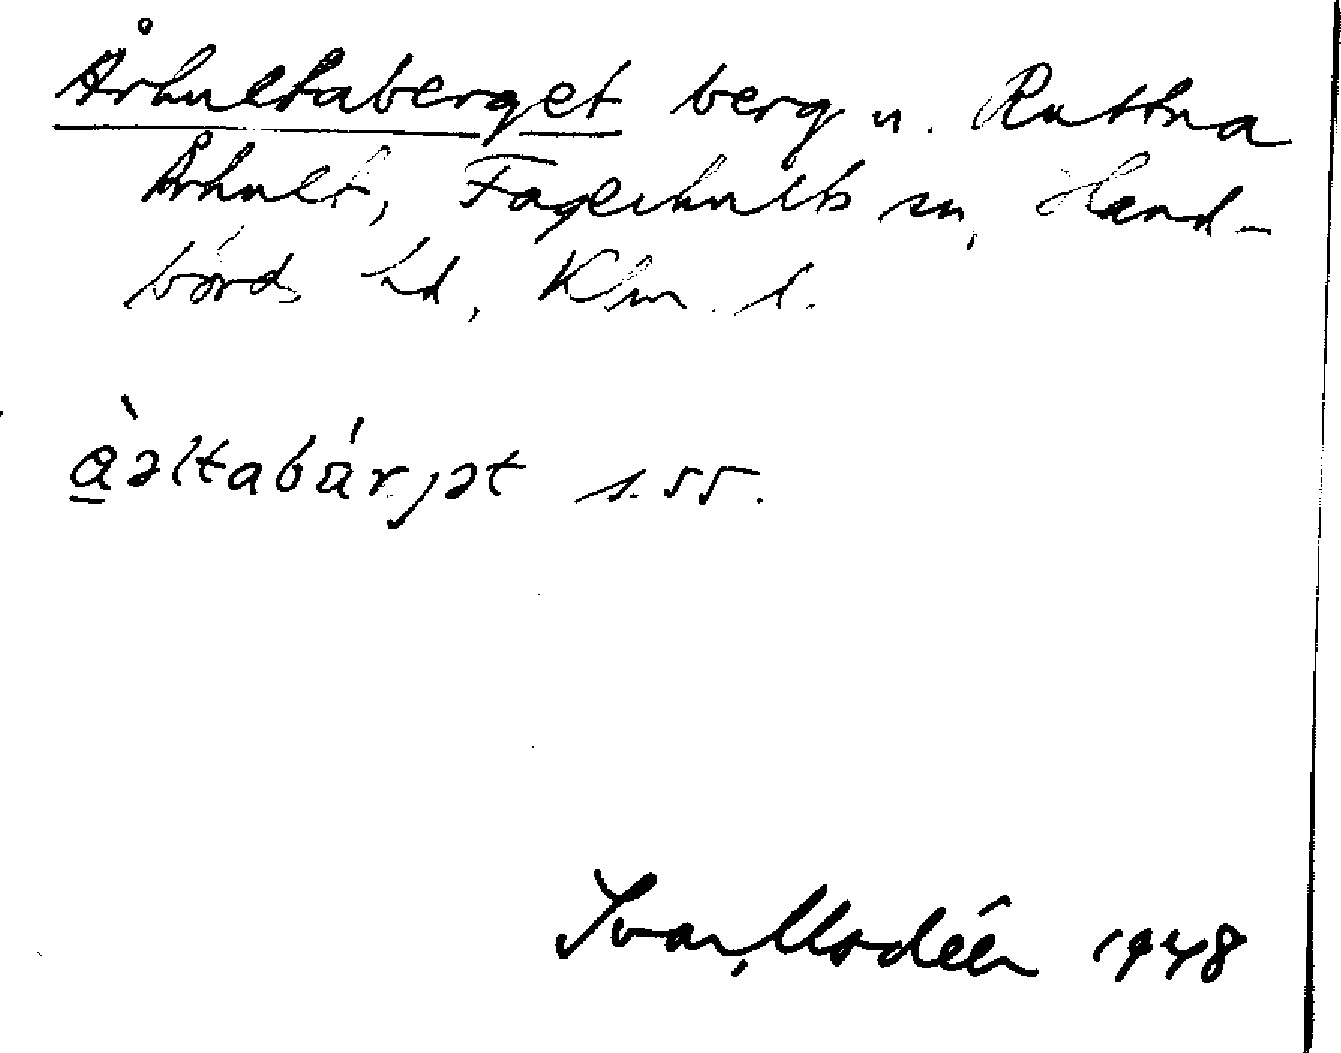 Århultaberget berg n. Ruttna
Århult, Fagerhults sn, Hand-
börds hd, Klm. l.
à̱əltabár.jət s. 55.
Ivar Modéer 1948